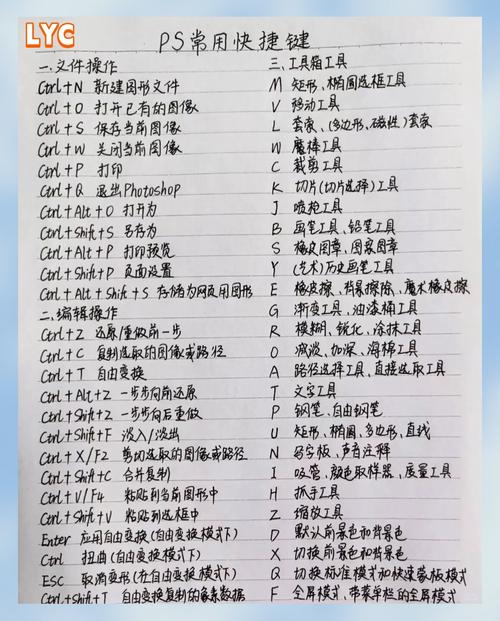 LYC
PS常用快捷键
一.文件操作
Ctrl+N 新建图形文件
Ctrl+O 打开已有的图像
Ctrl+S 保存当前图像
Ctrl+W 关闭当前图像
Ctrl+P 打印
Ctrl+Q 退出Photoshop
Ctrl+Alt+O 打开为
Ctrl+Shift+S 另存为
Ctrl+Alt+P 打印预览
Ctrl+Shift+P 页面设置
Ctrl+Alt+Shift+S 存储为网页用图形
二.编辑操作
Ctrl+Z 还原/重做前一步
Ctrl+C 复制选取的图像或路径
Ctrl+T 自由变换
Ctrl+Alt+Z 一步步向前还原
Ctrl+Shift+Z 一步步向后重做
Ctrl+Shift+F 淡入/淡出
Ctrl+X/F2 剪切选取的图像或路径
Ctrl+Shift+C 合并复制
Ctrl+V/F4 粘贴到当前图形中
Ctrl+Shift+V 粘贴到选框中
Enter 应用自由变换(自由变换模式下)
Ctrl 扭曲(自由变换模式下)
ESC 取消变形(在自由变换模式下)
Ctrl+Shift+T 自由变换复制的像素数据
三.工具箱工具
M 矩形、椭圆选框工具
V 移动工具
L 套索、(多边形、磁性)套索
W 魔棒工具
C 裁剪工具
K 切片(切片选择)工具
J 喷枪工具
B 画笔工具、铅笔工具
S 橡皮图章、图案图章
Y (艺术)历史画笔工具
E 橡皮擦、背景擦除、魔术橡皮擦
G 渐变工具、油漆桶工具
R 模糊、锐化、涂抹工具
O 减淡、加深、海棉工具
A 路径选择工具、直接选取工具
T 文字工具
P 钢笔、自由钢笔
U 矩形、椭圆、多边形、直线
N 写字板、声音注释
I 吸管、颜色取样器、度量工具
H 抓手工具
Z 缩放工具
D 默认前景色和背景色
X 切换前景色和背景色
Q 切换标准模式和快速蒙板模式
F 全屏模式、带菜单栏的全屏模式